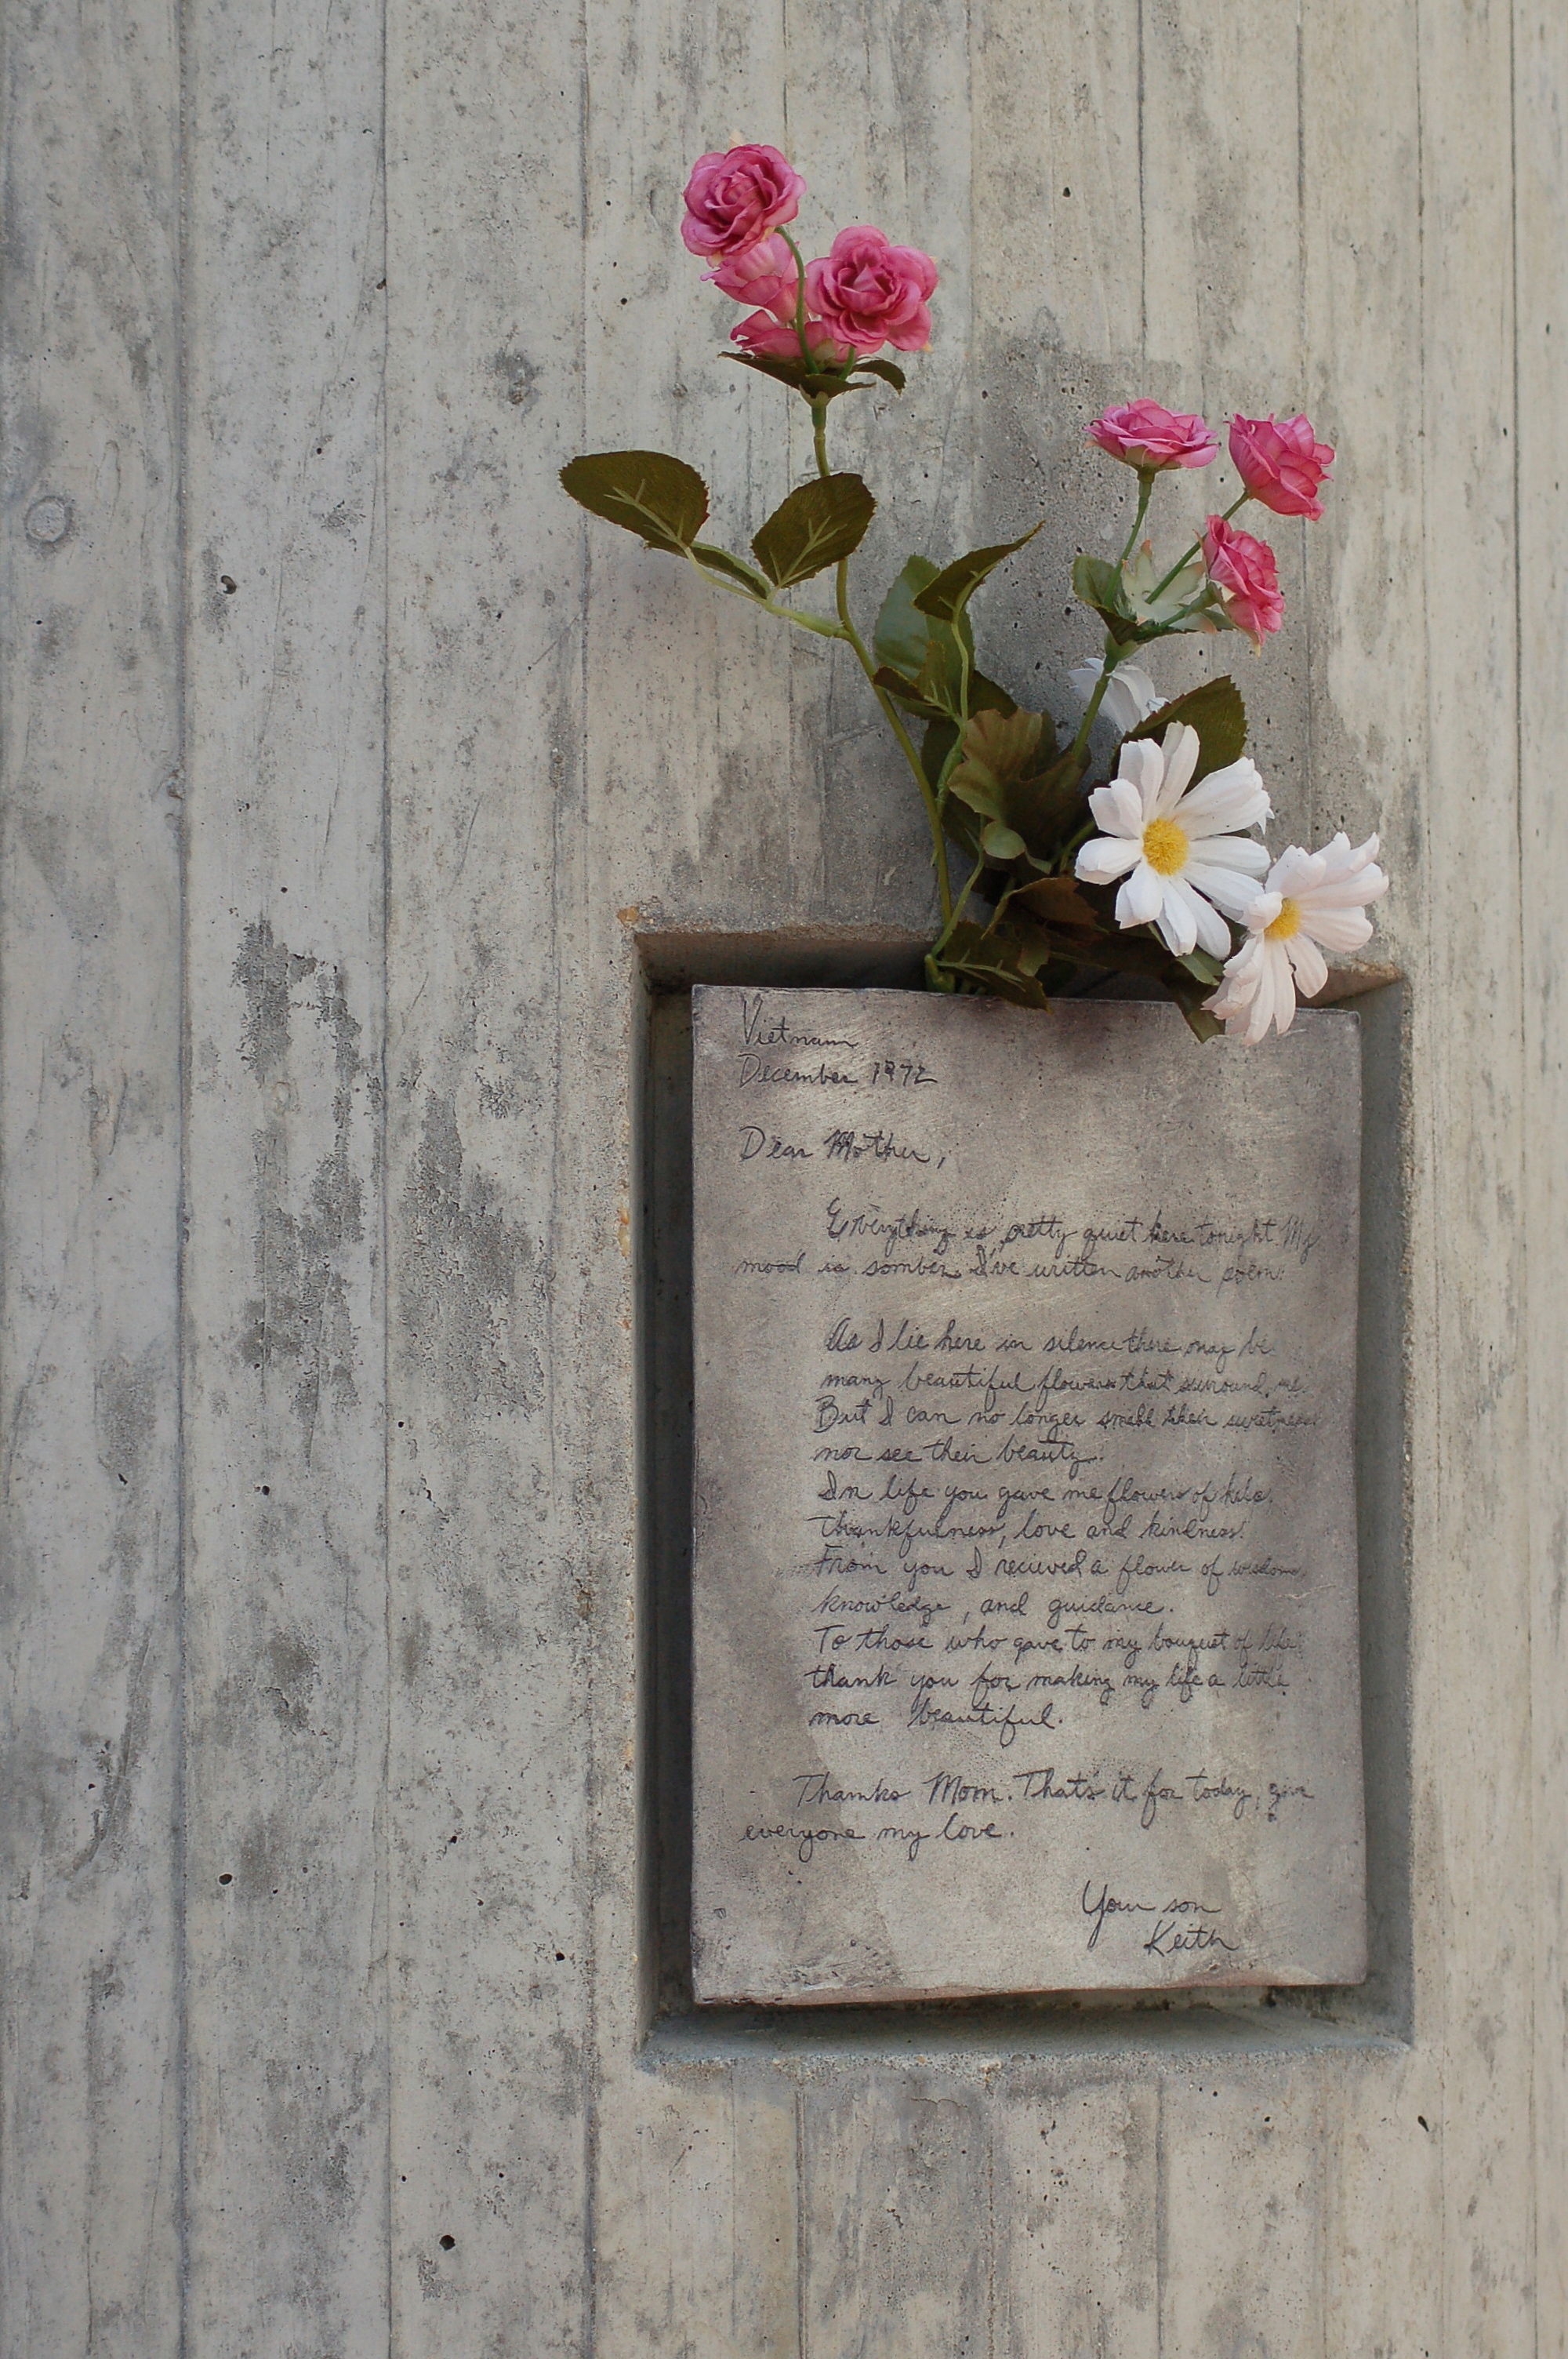 Vietnam
December 1972
Dear Mother,
Everything is pretty quiet here tonight. My
mood is somber. I've written another poem:
As I lie here in silence there may be
many beautiful flowers that surround me.
But I can no longer smell their sweetness
nor see their beauty.
In life you gave me flowers of help,
thankfulness, love and kindness.
From you I recieved a flower of wisdom,
knowledge, and guidance.
To those who gave to my bouquet of life,
thank you for making my life a little
more beautiful.
Thanks Mom. That's it for today, give
everyone my love.
Your son
Keith